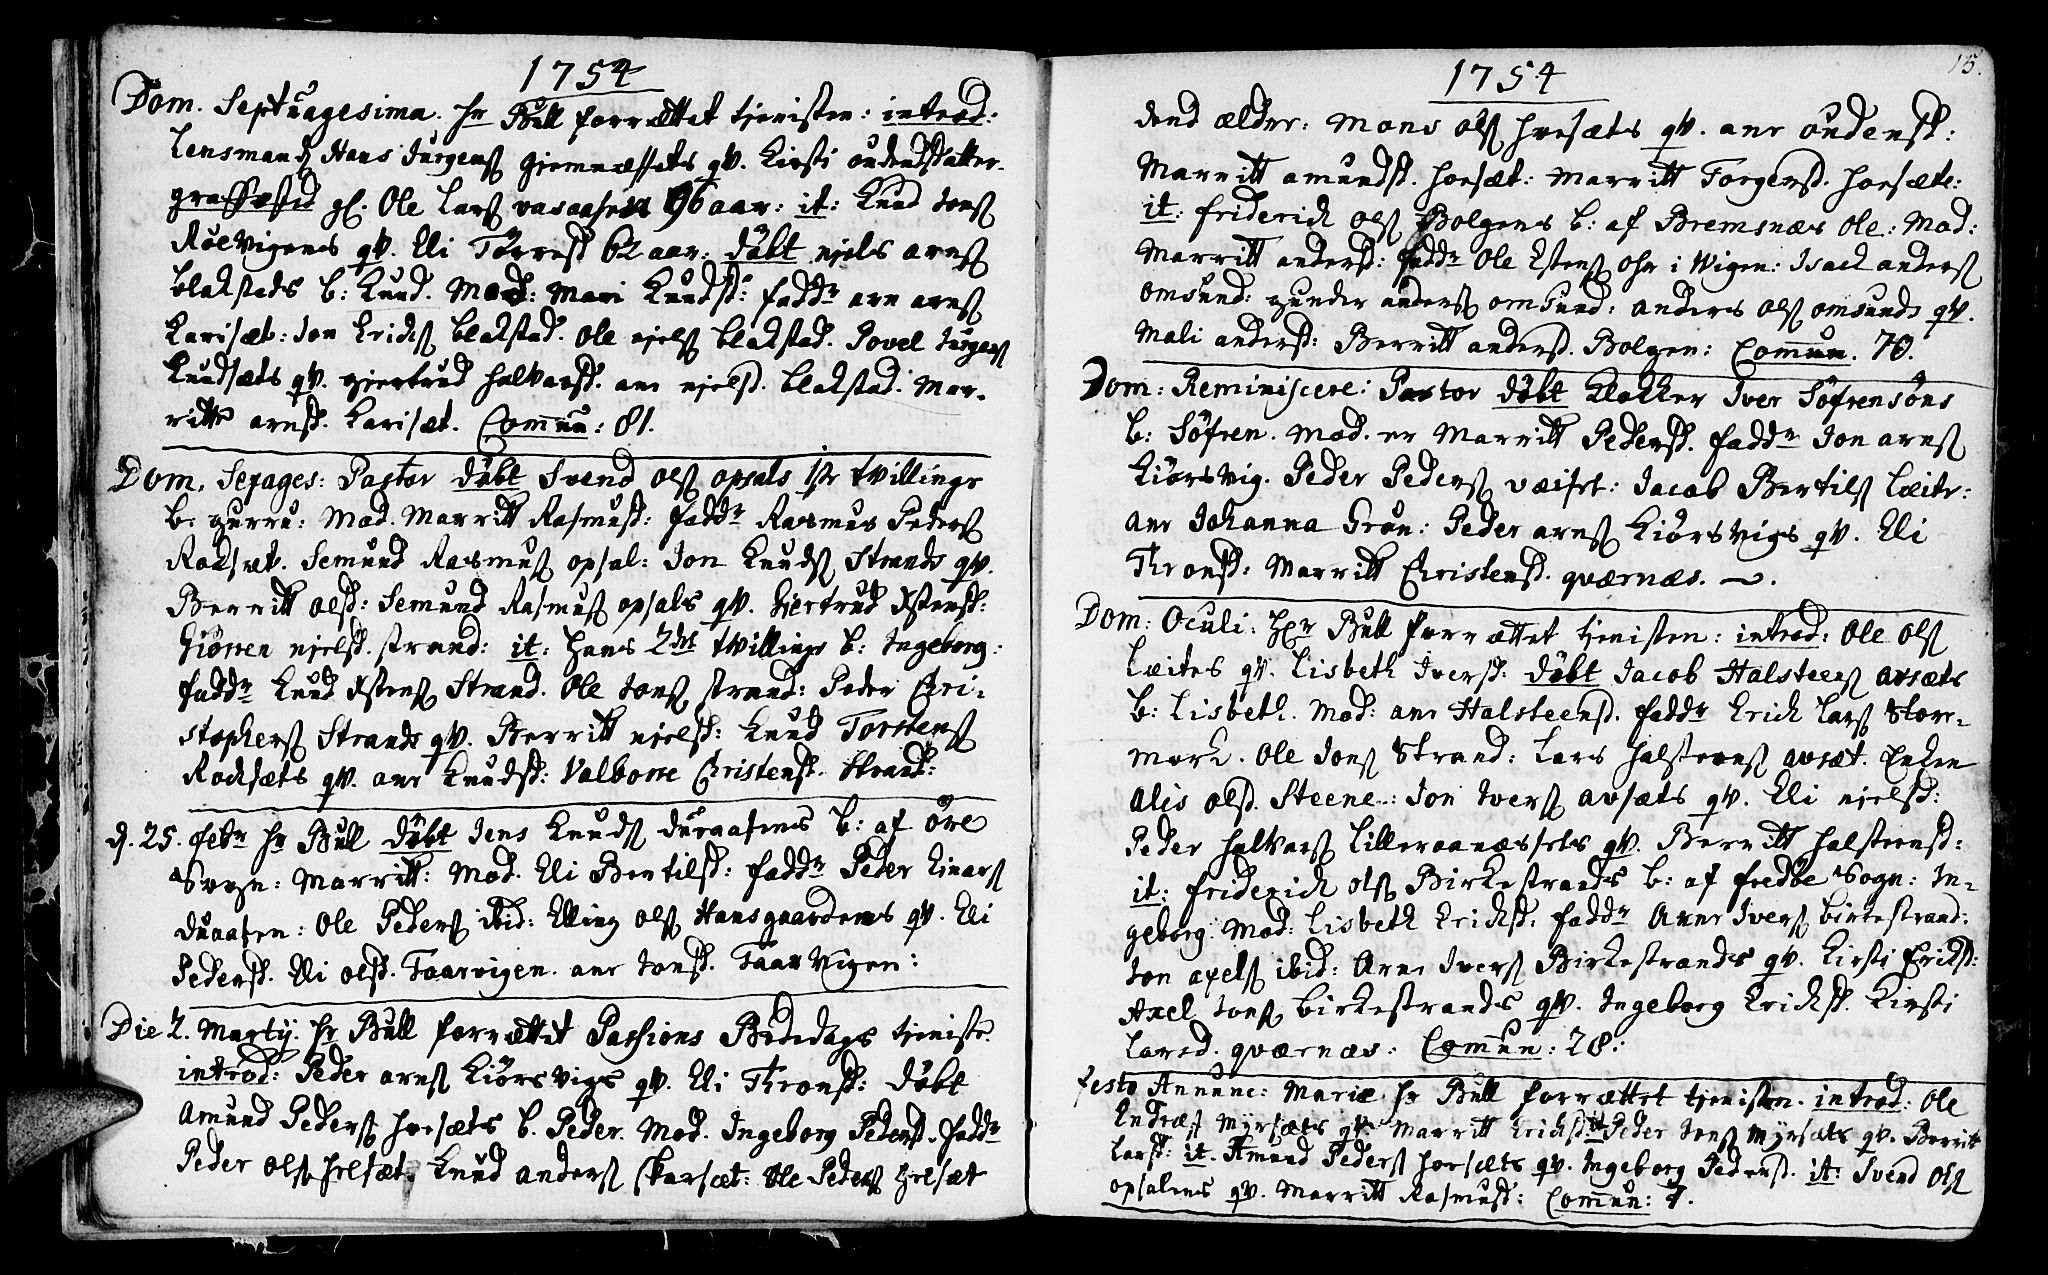 1754
Dom. Septuagesima. Hr Bull forrættet tjenisten: introd:
Lensmand Hans Jurgens Giemnæssets qv. Kirsti oudensdatter.
graffæstid gl. Ole Lars vasaasen 96 aar: it: Knud Jons
Røevigens qv. Eli Torresd 62 aar: døbt njels arns
blakstads b: Knud. Mod: Mari Knudsd: fadd͞r arn arns
Karisæt: Jon Erichs blakstad. Ole njels blakstad. Povel Jurgens
Knudsæts qv. gjertrud halvarsd. ane njelsd. blakstad. Mar-
ritt arnsd. Karisæt. Commun: 81.
Dom. Sexages: Pastor døbt Svend ols opsals 1ste tvillings
b: gurru: Mod. Marritt Rasmusd: fadd͞r Rasmus Peders
Roksæt. Semund Rasmus opsal: Jon Knuds Strands qv.
Berritt olsd: Semund Rasmus opsals qv. giertrud Estensd:
Giøren njelsd. strand: it: hans 2den tvillings b: Ingeborg:
fadd͞r Knud Estens Strand. Ole Jons strand: Peder Chri-
stophers Strands qv. Berritt njelsd: Knud Torstens
Rocksæts qv. ane Knudsd: Valborre Christensd. Strand:
d. 25. febr Hr Bull døbt Jens Knuds duraasens b: af öre
Sogn: Marritt: Mod. Eli Bertilsd: fadd͞r Peder Einars
duraasen: Ole Peders ibid: Elling ols Hansgaardens qv. Eli
Pedersd. Eli olsd. Taarvigen. ane Jonsd. Taarvigen:
Die 2. Martij. Hr Bull forrættet Passions Bededags tjeniste
introd: Peder arns Kiörsvigs qv. Eli Thronsd: döbt
Amund Peders hoesæts b. Peder. Mod. Ingeborg Pedersd. fadd͞r
Peder ols hoesæt. Knud anders skarsæt: Ole Peders hoesæt
1754
15.
dend ælder: Mons ols hoesæts qv. ane oudensd:
Marritt amundsd. hoesæt: Marritt Torgersd. hoesæte:
it: friderich ols Bolgens b: af Bremsnæs Ole: Mod:
Marritt andersd: fadd͞r Ole Estens ohr i Wigen: Isach anders
omsund: gunder anders omsund: anders ols omsunds qv.
Mali andersd: Berritt andersd. Bolgen: Commun. 70.
Dom: Reminiscere: Pastor døbt Klokker Iver Söfrensöns
b: Söfren. Mod. er Marritt Pedersd. fadd͞r Jon arns
Kiörsvig. Peder Peders væiset: Jacob Bertils Leite:
ane Johanna Grön: Peder arns Kiörsvigs qv. Eli
Thronsd: Marritt Christensd. qværnæs.
Dom: Oculi: Hr Bull forrættet tjenisten: introd: Ole ols
Læites qv. Lisbeth Iversd: døbt Jacob Halsteens avsæts
b: Lisbeth. Mod: ane Halsteensd. fadd͞r Erich Lars Stor-
mork. Ole Jons Strand: Lars halsteens avsæt. Enken
Alis olsd. Steene: Jon Ivers avsæts qv. Eli njelsd:
Peder halvars Lilleraanæssets qv. Berritt halsteensd:
it: friderich ols Birkestrands b: af fredöe Sogn: In-
geborg: Mod: Lisbeth Erichsd: fadd͞r Arne Ivers Birkestrand:
Jon axels ibid: Arne Ivers Birkestrands qv. Kirsti Eriksd:
Axel Jons birkestrands qv. Ingeborg Erichsd. Kirsti
Larsd. qværnæs: Commun: 28:
festo Annunc: Mariæ Hr Bull forrættet tjenisten. introd: Ole
Endræs Myrsæts qv. Marritt Erichsd it Peder Jons Myrsæts qv. Berritt
Larsd: it. Amund Peders hoesæts qv. Ingeborg Pedersd. it: Svend Ols
opsalens qv. Marritt Rasmusd: Commun: 7.